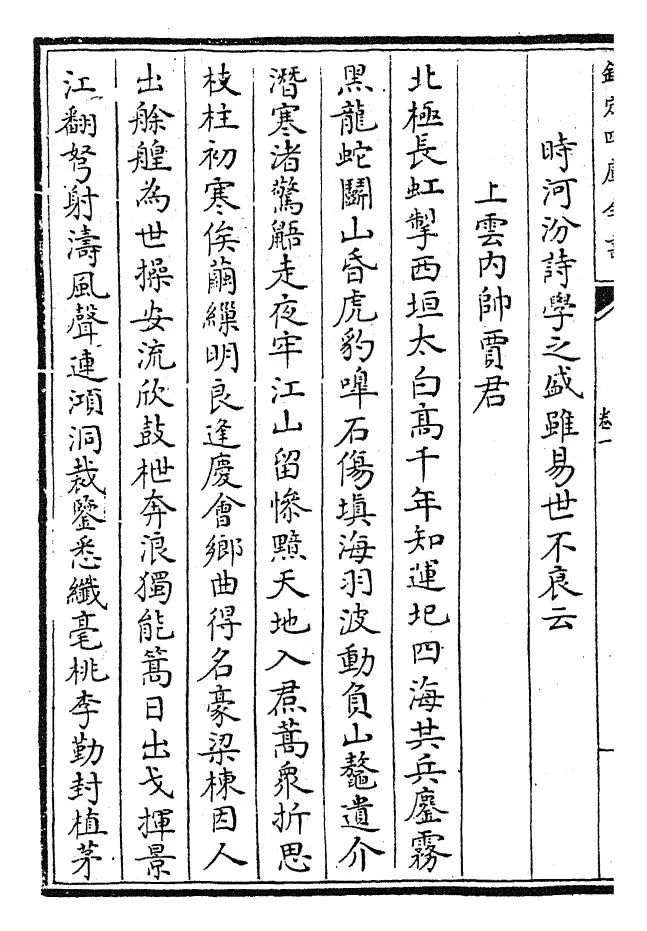 欽定四庫全書
卷一
時河汾詩學之盛雖易世不衰云
上雲內帥賈君
北極長虹掣西垣太白髙千年知運圯四海共兵鏖霧
黑龍蛇鬭山昏虎豹嘷石傷填海羽波動負山鼇遺介
潛寒渚驚鼯走夜牢江山留慘黷天地入焄蒿衆折思
枝柱初寒俟繭繅明良逢慶會鄉曲得名豪梁棟因人
出艅艎為世操安流欣鼓枻奔浪獨能篙日出戈揮景
江翻弩射濤風聲連澒洞裁鑒悉纖毫桃李勤封植茅